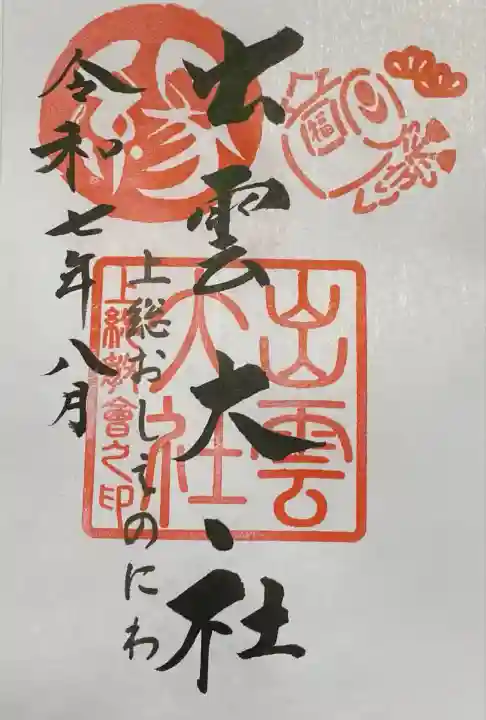 出雲大社
上総おしえのにわ
令和七年八月
出雲
大社
上総教會之印
縁
福